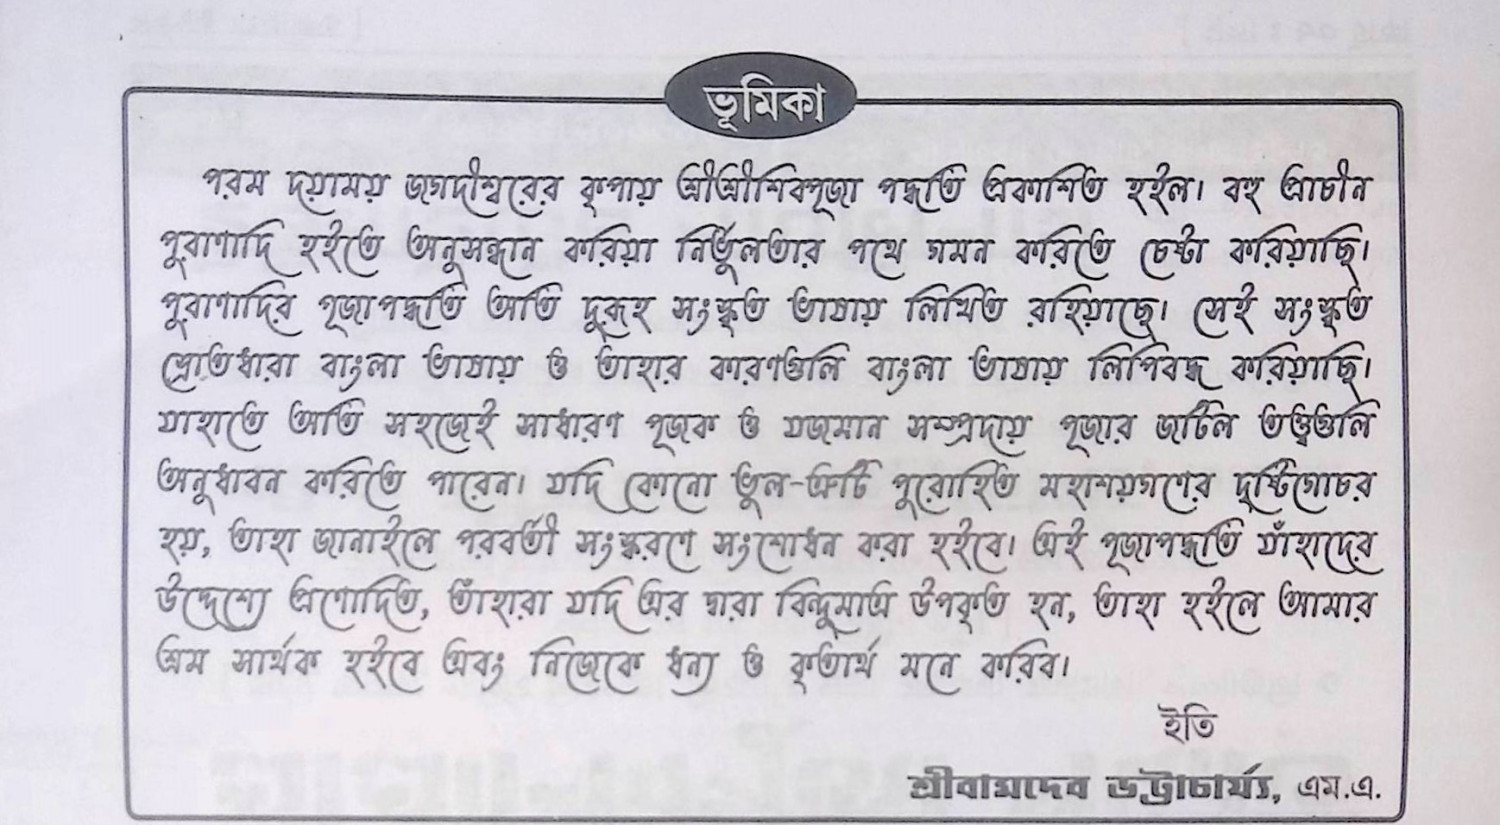 ভূমিকা
পরম দয়াময় জগদীশ্বরের কৃপায় শ্রীশ্রীশিবপূজা পদ্ধতি প্রকাশিত হইল। বহু প্রাচীন
পুরাণাদি হইতে অনুসন্ধান করিয়া নির্ভুলতার পথে গমন করিতে চেষ্টা করিয়াছি।
পুরাণাদির পূজাপদ্ধতি অতি দুরূহ সংস্কৃত ভাষায় লিখিত রহিয়াছে। সেই সংস্কৃত
স্রোতধারা বাংলা ভাষায় ও তাহার কারণগুলি বাংলা ভাষায় লিপিবদ্ধ করিয়াছি।
যাহাতে অতি সহজেই সাধারণ পূজক ও যজমান সম্প্রদায় পূজার জটিল তত্ত্বগুলি
অনুধাবন করিতে পারেন। যদি কোনো ভুল-ত্রুটি পুরোহিত মহাশয়গণের দৃষ্টিগোচর
হয়, তাহা জানাইলে পরবর্তী সংস্করণে সংশোধন করা হইবে। এই পূজাপদ্ধতি যাঁহাদের
উদ্দেশ্যে প্রণোদিত, তাঁহারা যদি এর দ্বারা বিন্দুমাত্র উপকৃত হন, তাহা হইলে আমার
শ্রম সার্থক হইবে এবং নিজেকে ধন্য ও কৃতার্থ মনে করিব।
ইতি
শ্রীবামদেব ভট্টাচার্য্য, এম.এ.